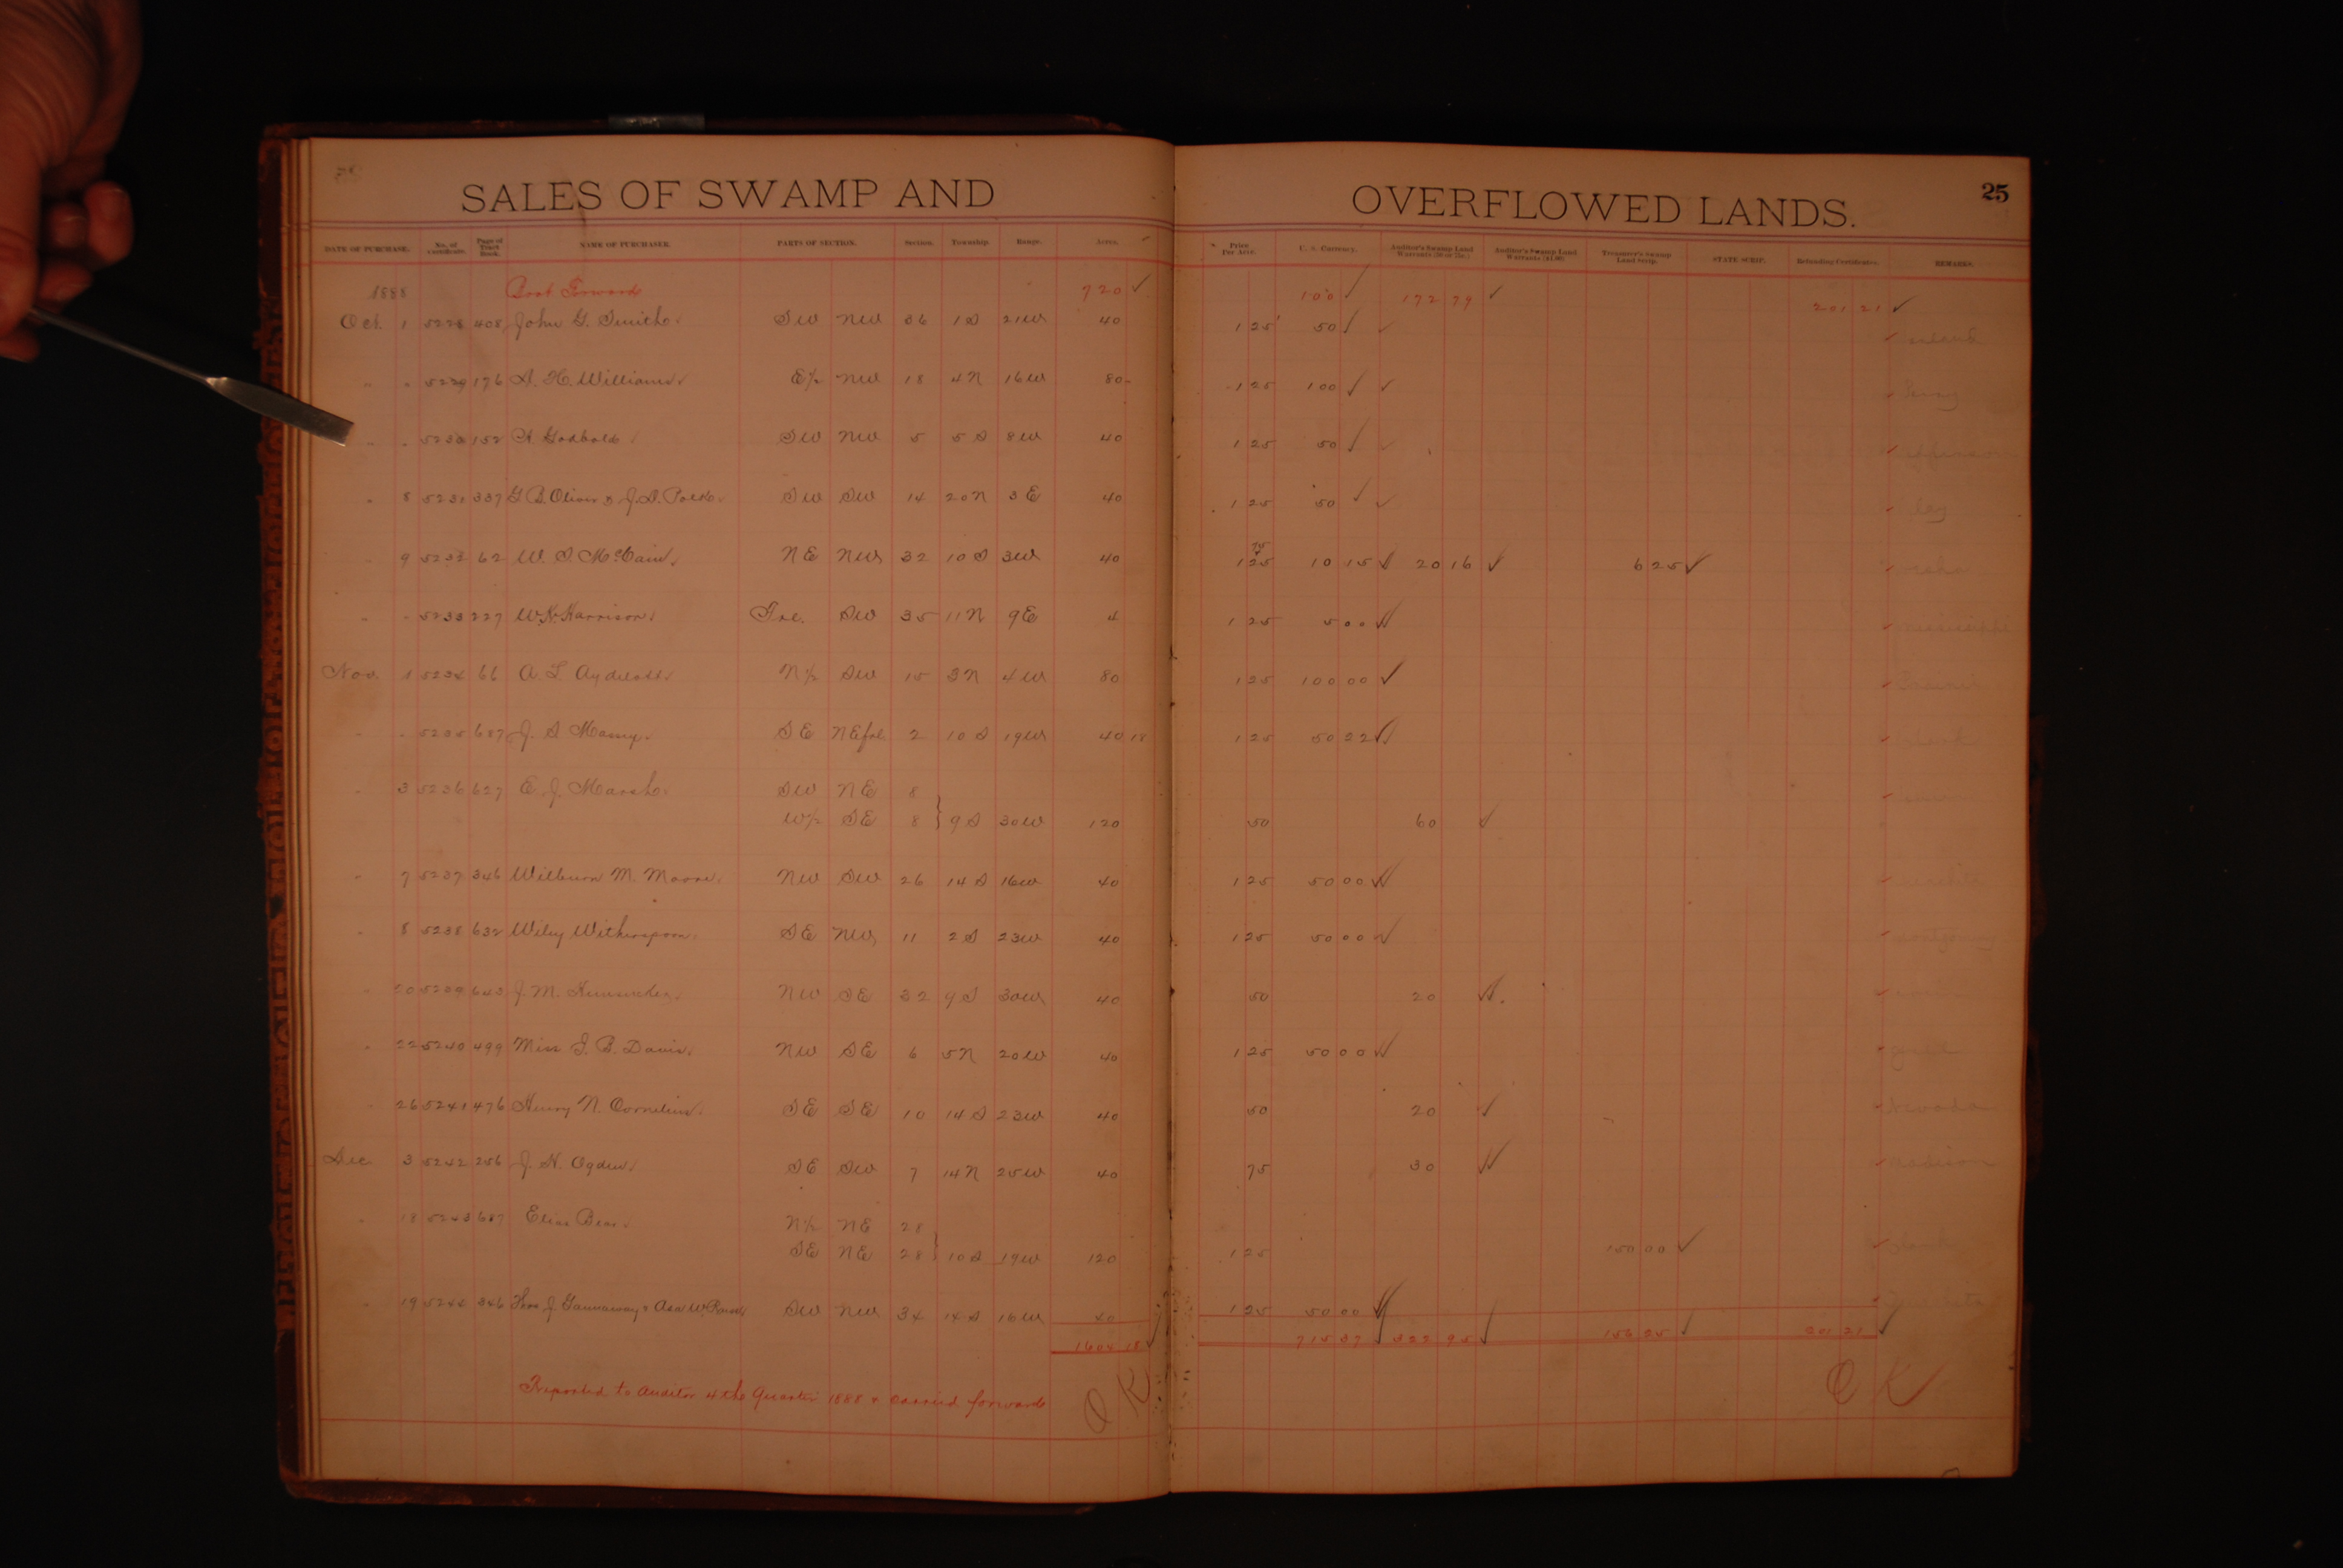 SALES OF SWAMP AND OVERFLOWED LANDS. 25
DATE OF PURCHASE. No. of Certificate. Page of Tract Book. NAME OF PURCHASER. PARTS OF SECTION. Section. Township. Range. Acres. Price Per Acre. U. S. Currency. Auditor's Swamp Land Warrants Auditor's Swamp Land Warrants Treasurer's Swamp Land Scrip. STATE SCRIP. Refunding Certificates. REMARKS.
1888 Brot Forward 720 ✓ 100 ✓ 172 79 ✓ 201 21 ✓
Oct. 1 5228 408 John G. Smith SW NW 36 1 S 21W 40 1 25 50 ✓
" " 5229 176 H. Williams E½ NW 18 4N 16W 80 1 25 100 ✓
" " 5230 152 SW NW 5 5 S 8W 40 1 25 50 ✓
" 8 5231 337 G. B. Oliver & J. D. Polk SW SW 14 20N 3 E 40 1 25 50 ✓
" 9 5232 62 W. S. McCain NE NW 32 10 S 3W 40 75 1 25 10 15 ✓ 20 16 ✓ 6 25 ✓
" " 5233 227 W. H. Harrison SW 35 11N 9E 4 1 25 5 00 ✓
Nov. 1 5234 66 A. L. Aydelott N½ SW 15 3N 4W 80 1 25 100 00 ✓
" " 5235 687 J. S. Massey SE NEfrl. 2 10 S 19W 40 18 1 25 50 22 ✓
" 3 5236 627 E. J. Marsh SW NE 8
W½ SE 8 } 9 S 30W 120 50 60 ✓
" 7 5237 346 Wilburn M. Moore NW SW 26 14 S 16W 40 1 25 50 00 ✓
" 8 5238 632 Wiley Witherspoon SE NW 11 2 S 23W 40 1 25 50 00 ✓
" 20 5239 643 J. M. NW SE 32 9 S 30W 40 50 20 ✓
" 22 5240 499 Miss J. B. Davis NW SE 6 5N 20W 40 1 25 50 00 ✓
" 26 5241 476 Henry N. Cornelius SE SE 10 14 S 23W 40 50 20 ✓ Nevada
Dec 3 5242 256 J. N. Ogden SE SW 7 14N 25W 40 75 30 ✓ Madison
" 18 5243 687 Elias Bear N½ NE 28
SE NE 28 } 10 S 19W 120 1 25 150 00 ✓
" 19 5244 346 Thos J. Gannaway & Asa W. SW NW 34 14 S 16W 40 1 25 50 00 ✓
1604 18 ✓ 715 37 ✓ 322 95 ✓ 156 25 ✓ 201 21 ✓
Reported to Auditor 4th Quarter 1888 & carried forward OK OK